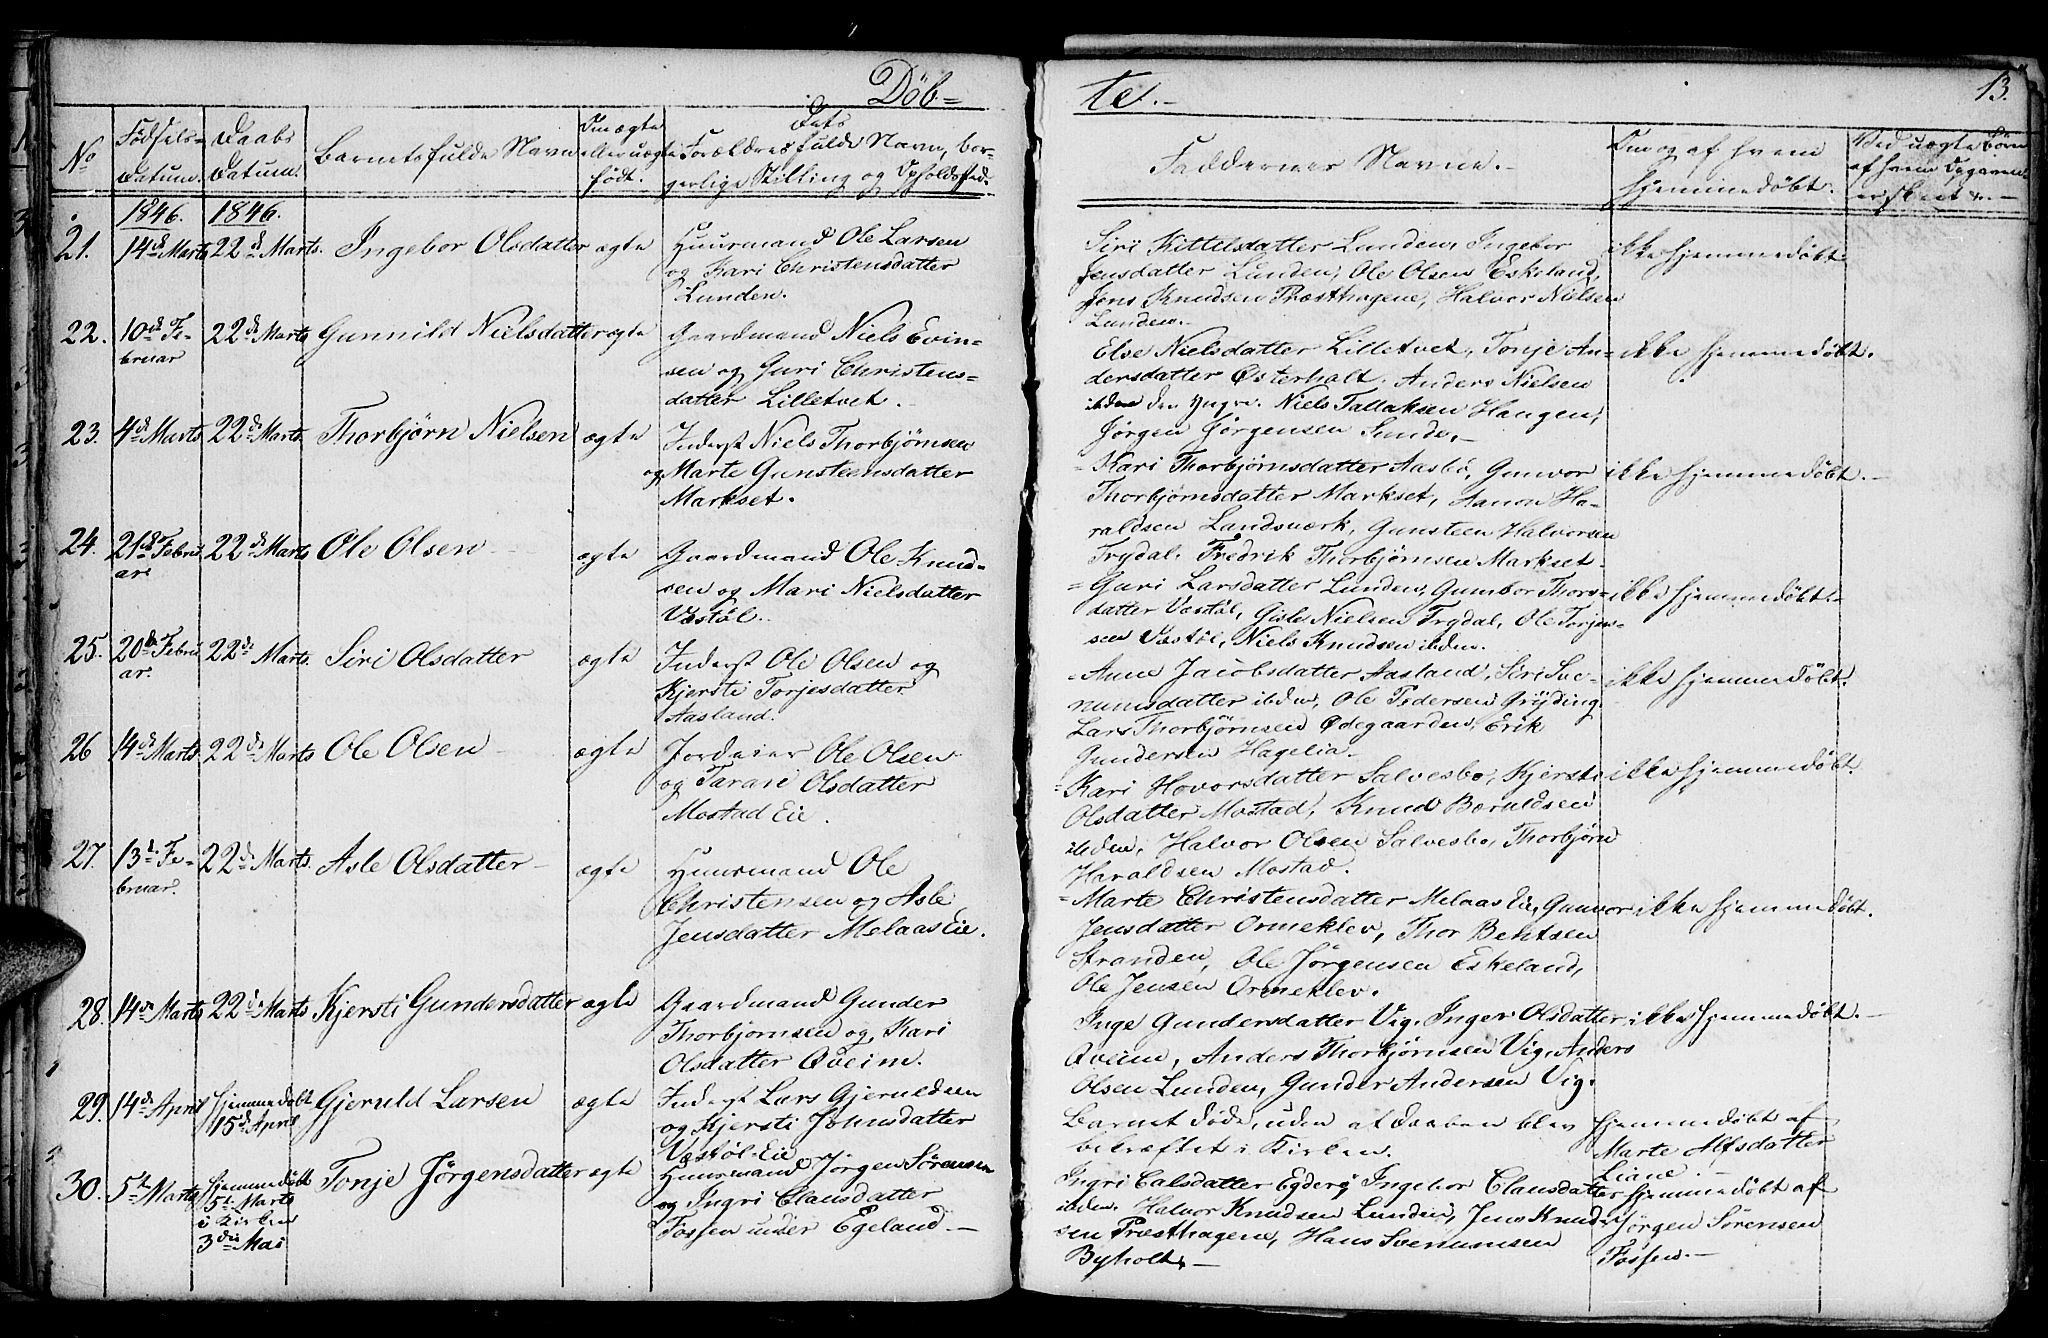 Döb=
te.-
13.
No
Fødsels-
datum.
Daabs
datum.
Barnets fulde Navn
Om ægte
eller uægte
født.
Dets
Forældres fulde Navn, bor-
gerlige Stilling og Opholdssted.
Faddernes Navne.-
Om og af hvem
hjemmedøbt.
Ved uægte Børn
1846.
1846.
21.
14de Marts
22de Marts.
Ingebor Olsdatter
ægte
Huusmand Ole Larsen
og Kari Christensdatter
Lunden.
Siri Kittelsdatter Lunden, Ingebor
Jensdatter Lunden, Ole Olsen Eskeland,
Jens Knudsen Præsthagene, Halvor Nielsen
Lunden.-
ikke hjemmedøbt
22.
10de Fe-
bruar
22de Marts
Gunnild Nielsdatter
ægte
Gaardmand Niels Evin-
sen og Guri Christens=
datter Lilletvet.-
Else Nielsdatter Lilletvet, Tonje An-
dersdatter Østerholt. Anders Nielsen
ibden den Yngre. Niels Tallaksen Haugen,
Jørgen Jørgensen Sunde.-
ikke hjemmedøbt.
23.
4de Marts
22de Marts
Thorbjørn Nielsen
ægte
Inderst Niels Thorbjørnsen
og Marte Gunsteensdatter
Markset.
Kari Thorbjørnsdatter Aasbø, Gunvor
Thorbjørnsdatter Markset, Aanon Ha-
raldsen Landsværk, Gunsteen Halvorsen
Trydal. Fredrik Thorbjørnsen Markset.
ikke hjemmedøbt.-
24.
21de Febru
ar.
22de Marts
Ole Olsen
ægte
Gaardmand Ole Knud-
sen og Mari Nielsdatter
Væstøl.
Guri Larsdatter Lunden, Gunbor Thors-
datter Væstøl, Gisle Nielsen Trydal, Ole Torjes-
sen Væstøl, Niels Knudsen ibden.
ikke hjemmedøbt.-
25.
20de Febru
ar.
22de Marts.
Siri Olsdatter
ægte
Inderst Ole Olsen og
Kjersti Torjesdatter
Aasland.
Anne Jacobsdatter Aasland, Siri Sve-
numsdatter ibden, Ole Pedersen Gryding
Lars Thorbjørnsen Ødegaarden, Erik
Gundersen Hagelia.
ikke hjemmedøbt.
26
14de Marts.
22de Marts
Ole Olsen
ægte
Jordeier Ole Olsen
og Tarari Olsdatter
Mostad Eie.
Kari Hovorsdatter Salvesbo, Kjersti
Olsdatter Mostad, Knud Beruldsen
ibden, Halvor Olsen Salvesbo, Thorbjørn
Haraldsen Mostad.
ikke hjemmedøbt.
27.
13de Fe-
bruar.
22de Marts.
Asle Olsdatter
ægte
Huusmand Ole
Christensen og Asle
Jensdatter Melaas Eie.
Marte Christensdatter Melaas Eie, Gunvor
Jensdatter Ormeklev, Thor Bentsen
Stranden, Ole Jørgensen Eskeland,
Ole Jensen Ormeklev.
ikke hjemmedøbt.
28.
14de Marts
22de Marts
Kjersti Gundersdatter
ægte
Gaardmand Gunder
Thorbjørnsen og Kari
Olsdatter Qveim.
Inge Gundersdatter Vig, Inger Olsdatter
Qveim, Anders Thorbjørnsen Vig, Anders
Olsen Lunden, Gunder Andersen Vig.
ikke hjemmedøbt.-
29.
14de April
hjemmedøbt
15de April
Gjeruld Larsen
ægte
Inderst Lars Gjeruldsen
og Kjersti Johnsdatter
Væstøl Eie
Barnet døde, uden at Daaben blev
bekræftet i Kirken.
hjemmedøbt af
Marte Alfsdatter
Liane.-
30.
5te Marts
hjemmedøbt
5te Marts
i Kirken
3die Mai
Tonje Jørgensdatter
ægte
Huusmand Jørgen Sørensen
og Ingri Clausdatter
Fossen under Egeland.-
Ingri Calsdatter Egders Ingebor Clausdatter
ibden. Halvor Knudsen Lunden, Jens Knud-
sen Præsthagene, Hans Svenumsen
Byholt.-
hjemmedøbt af
Jørgen Sørensen
Fossen.-